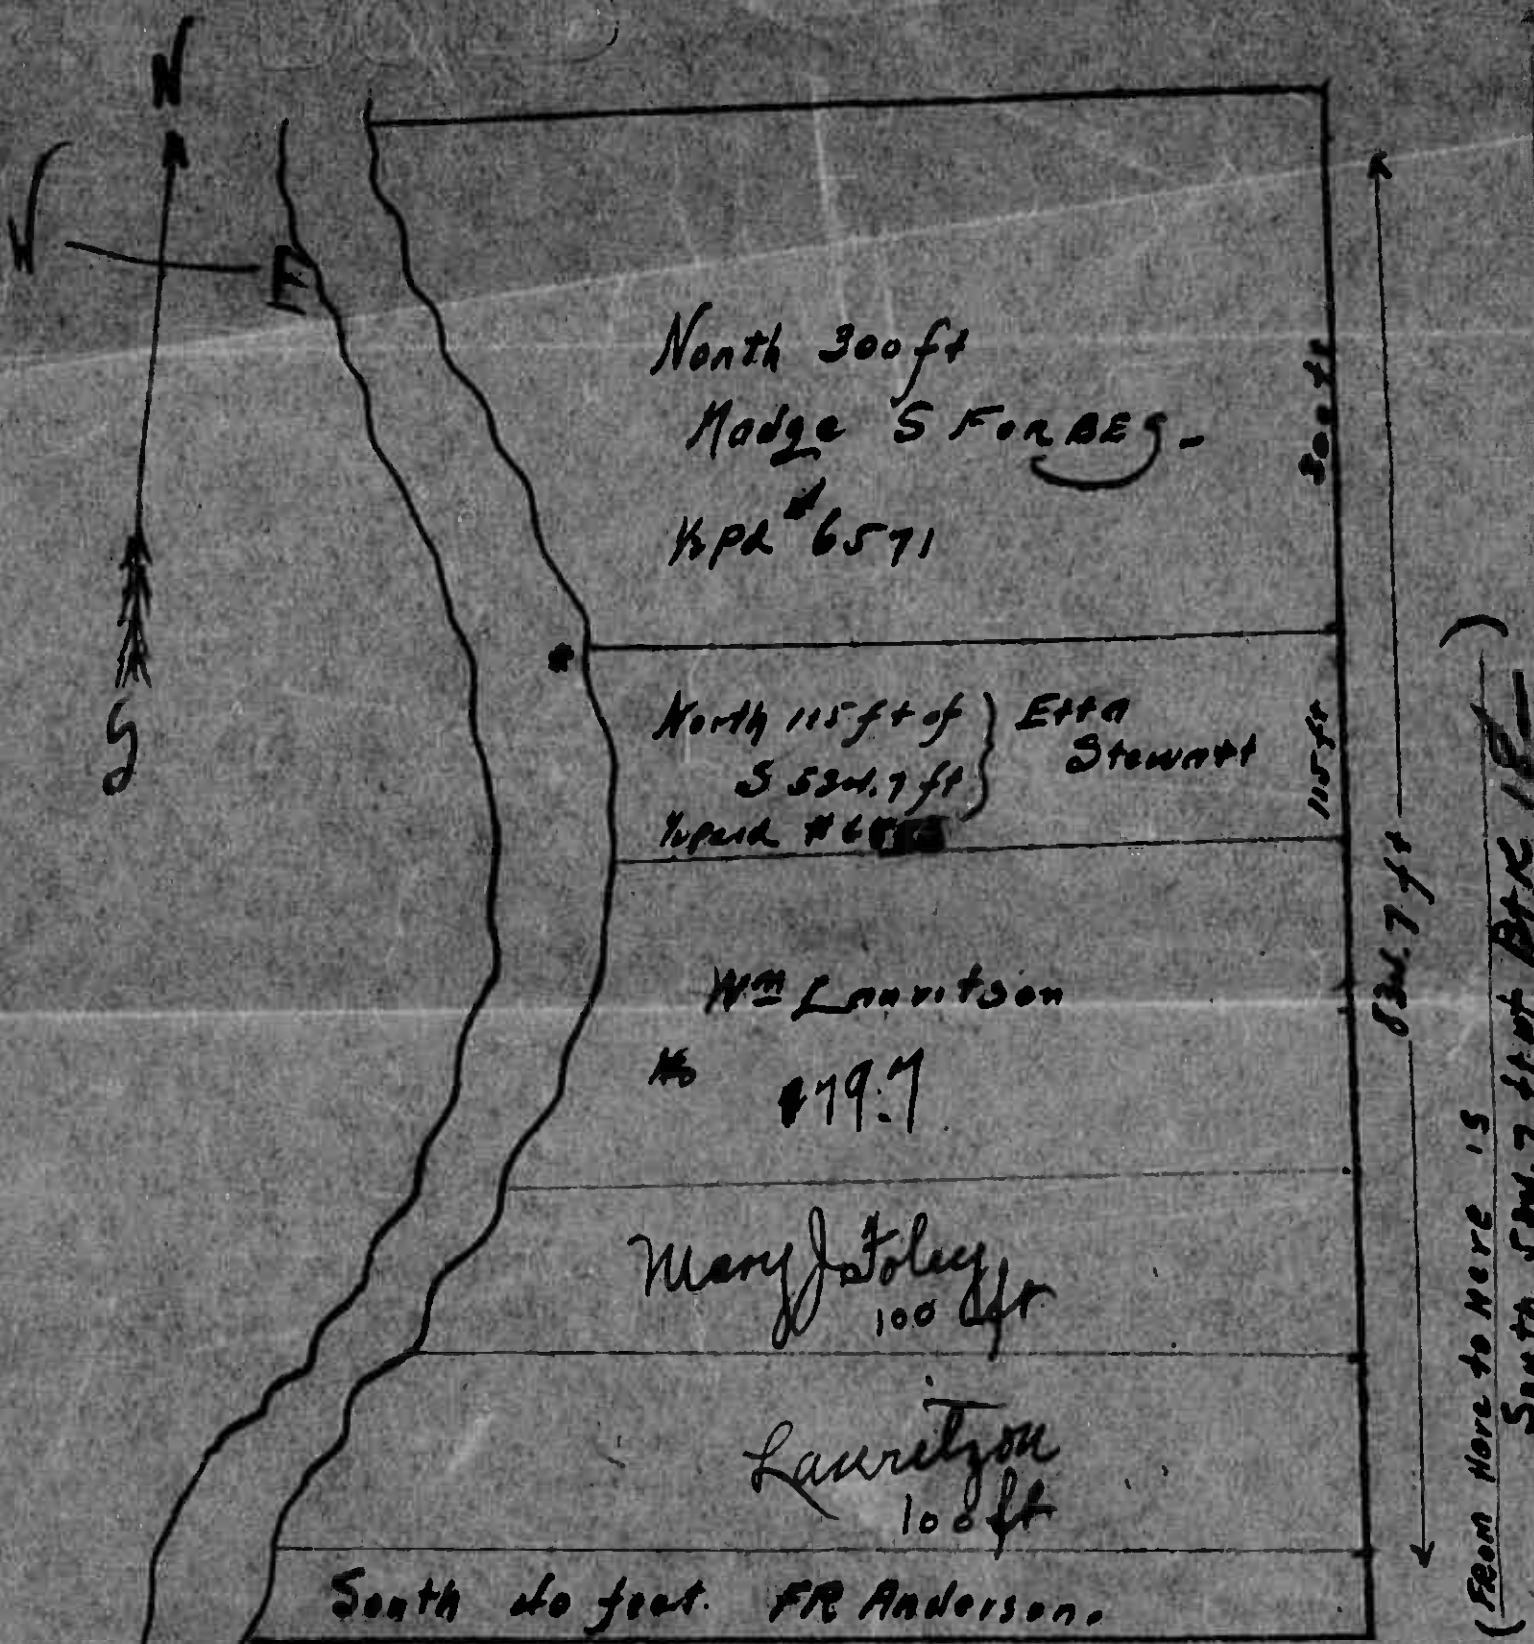 N
W
E
S
North 300 ft
Madge S FORBES -
½ pd # 6571
300 ft
North 115 ft of
S 534.7 ft
½ paid #
Etta
Stewart
115 ft
Wm Lauritson
179.7
834.7 ft
Mary J Foley
100 ft
Lauritzon
100 ft
South 40 feet. FR Anderson.
(FROM Here to Here is
South 534.7 ft of Blk 18)